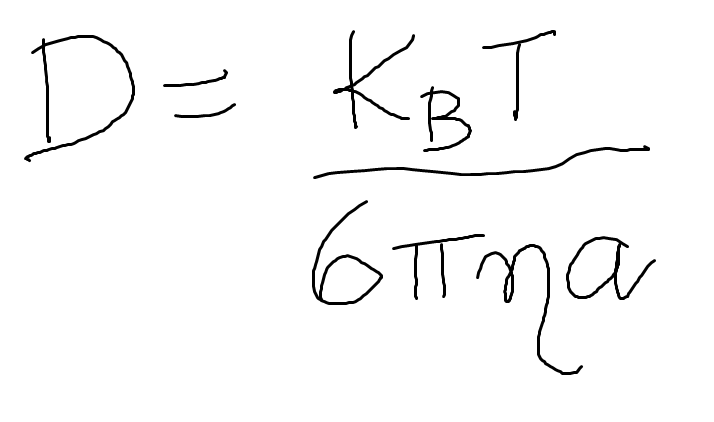 D = K_B T
6πηa